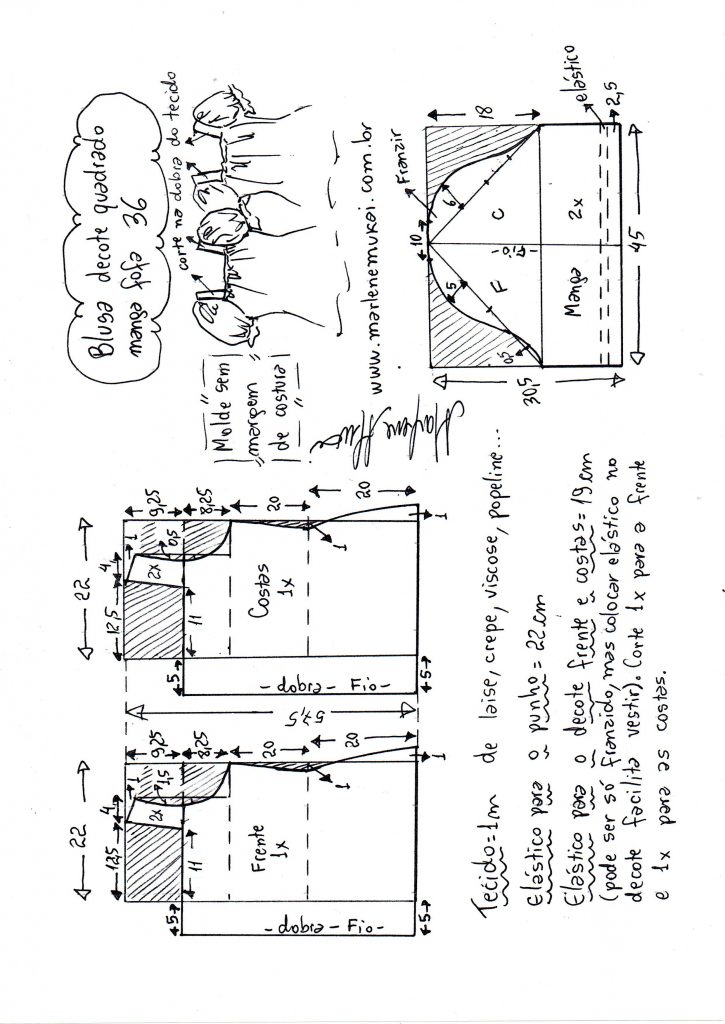 Blusa decote quadrado
manga fofa 36
corte na dobra do tecido
Molde sem
margem
de costura
www.marlenemukai.com.br
22
12,5
4
1
9,25
2x
1,5
8,25
11
5
Frente
1x
20
20
1
1
- dobra - Fio -
5
57,5
22
12,5
4
1
9,25
2x
0,5
8,25
11
5
Costas
1x
20
20
1
1
- dobra - Fio -
5
10
Franzir
18
30,5
5
6
0,5
F
C
-Fio-
Manga
2x
elástico
2,5
45
Tecido=1m de laise, crepe, viscose, popeline...
Elástico para o punho = 22cm
Elástico para o decote frente e costas = 19cm
(pode ser só franzido, mas colocar elástico no
decote facilita vestir). Corte 1x para a frente
e 1x para as costas.